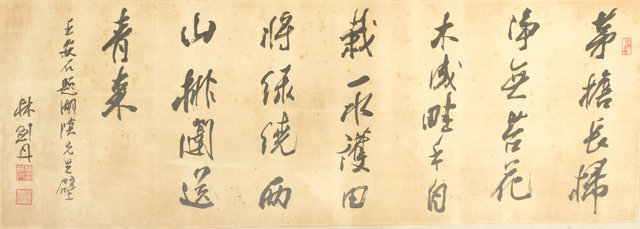 茅檐長掃
净無苔花
木成畦手自
栽一水護田
將綠繞兩
山排闥送
青來
王安石題湖陰先生壁
林劍丹